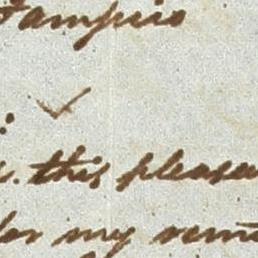 Tampico
: ✓
. this pleasu
for my remi